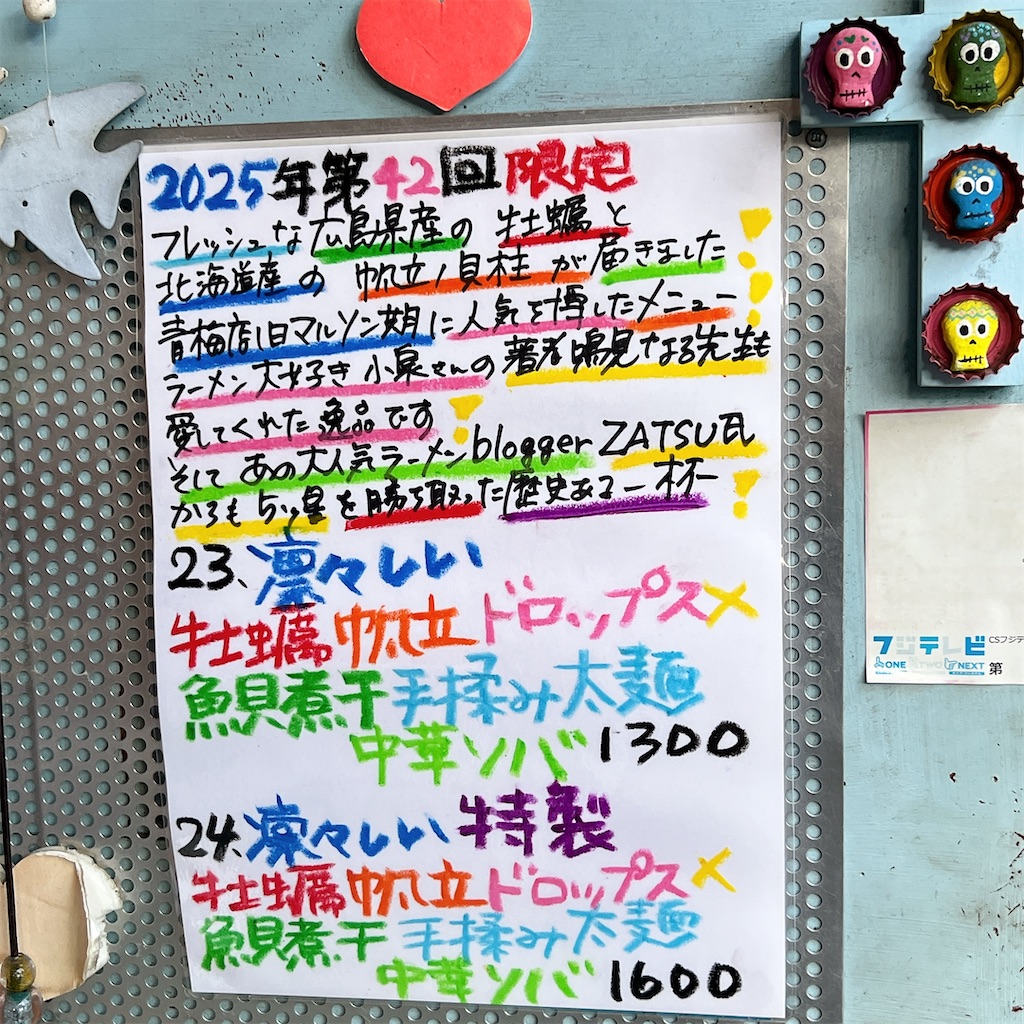 2025年第42回限定
フレッシュな広島県産の牡蠣と
北海道産の帆立ノ貝柱が届きました!
青梅店旧マルソン期に人気を博したメニュー!
ラーメン大好き小泉さんの著者鳴見なる先生も
愛してくれた逸品です!
そしてあの大人気ラーメンblogger ZATSU氏
からも5ッ星を勝ち取った歴史ある一杯!
23、凛々しい
牡蠣帆立ドロップス×
魚貝煮干手揉み太麺
中華ソバ1300
24、凛々しい特製
牡蠣帆立ドロップス×
魚貝煮干手揉み太麺
中華ソバ1600
フジテレビ
ONE TWO NEXT
CSフジテ
第